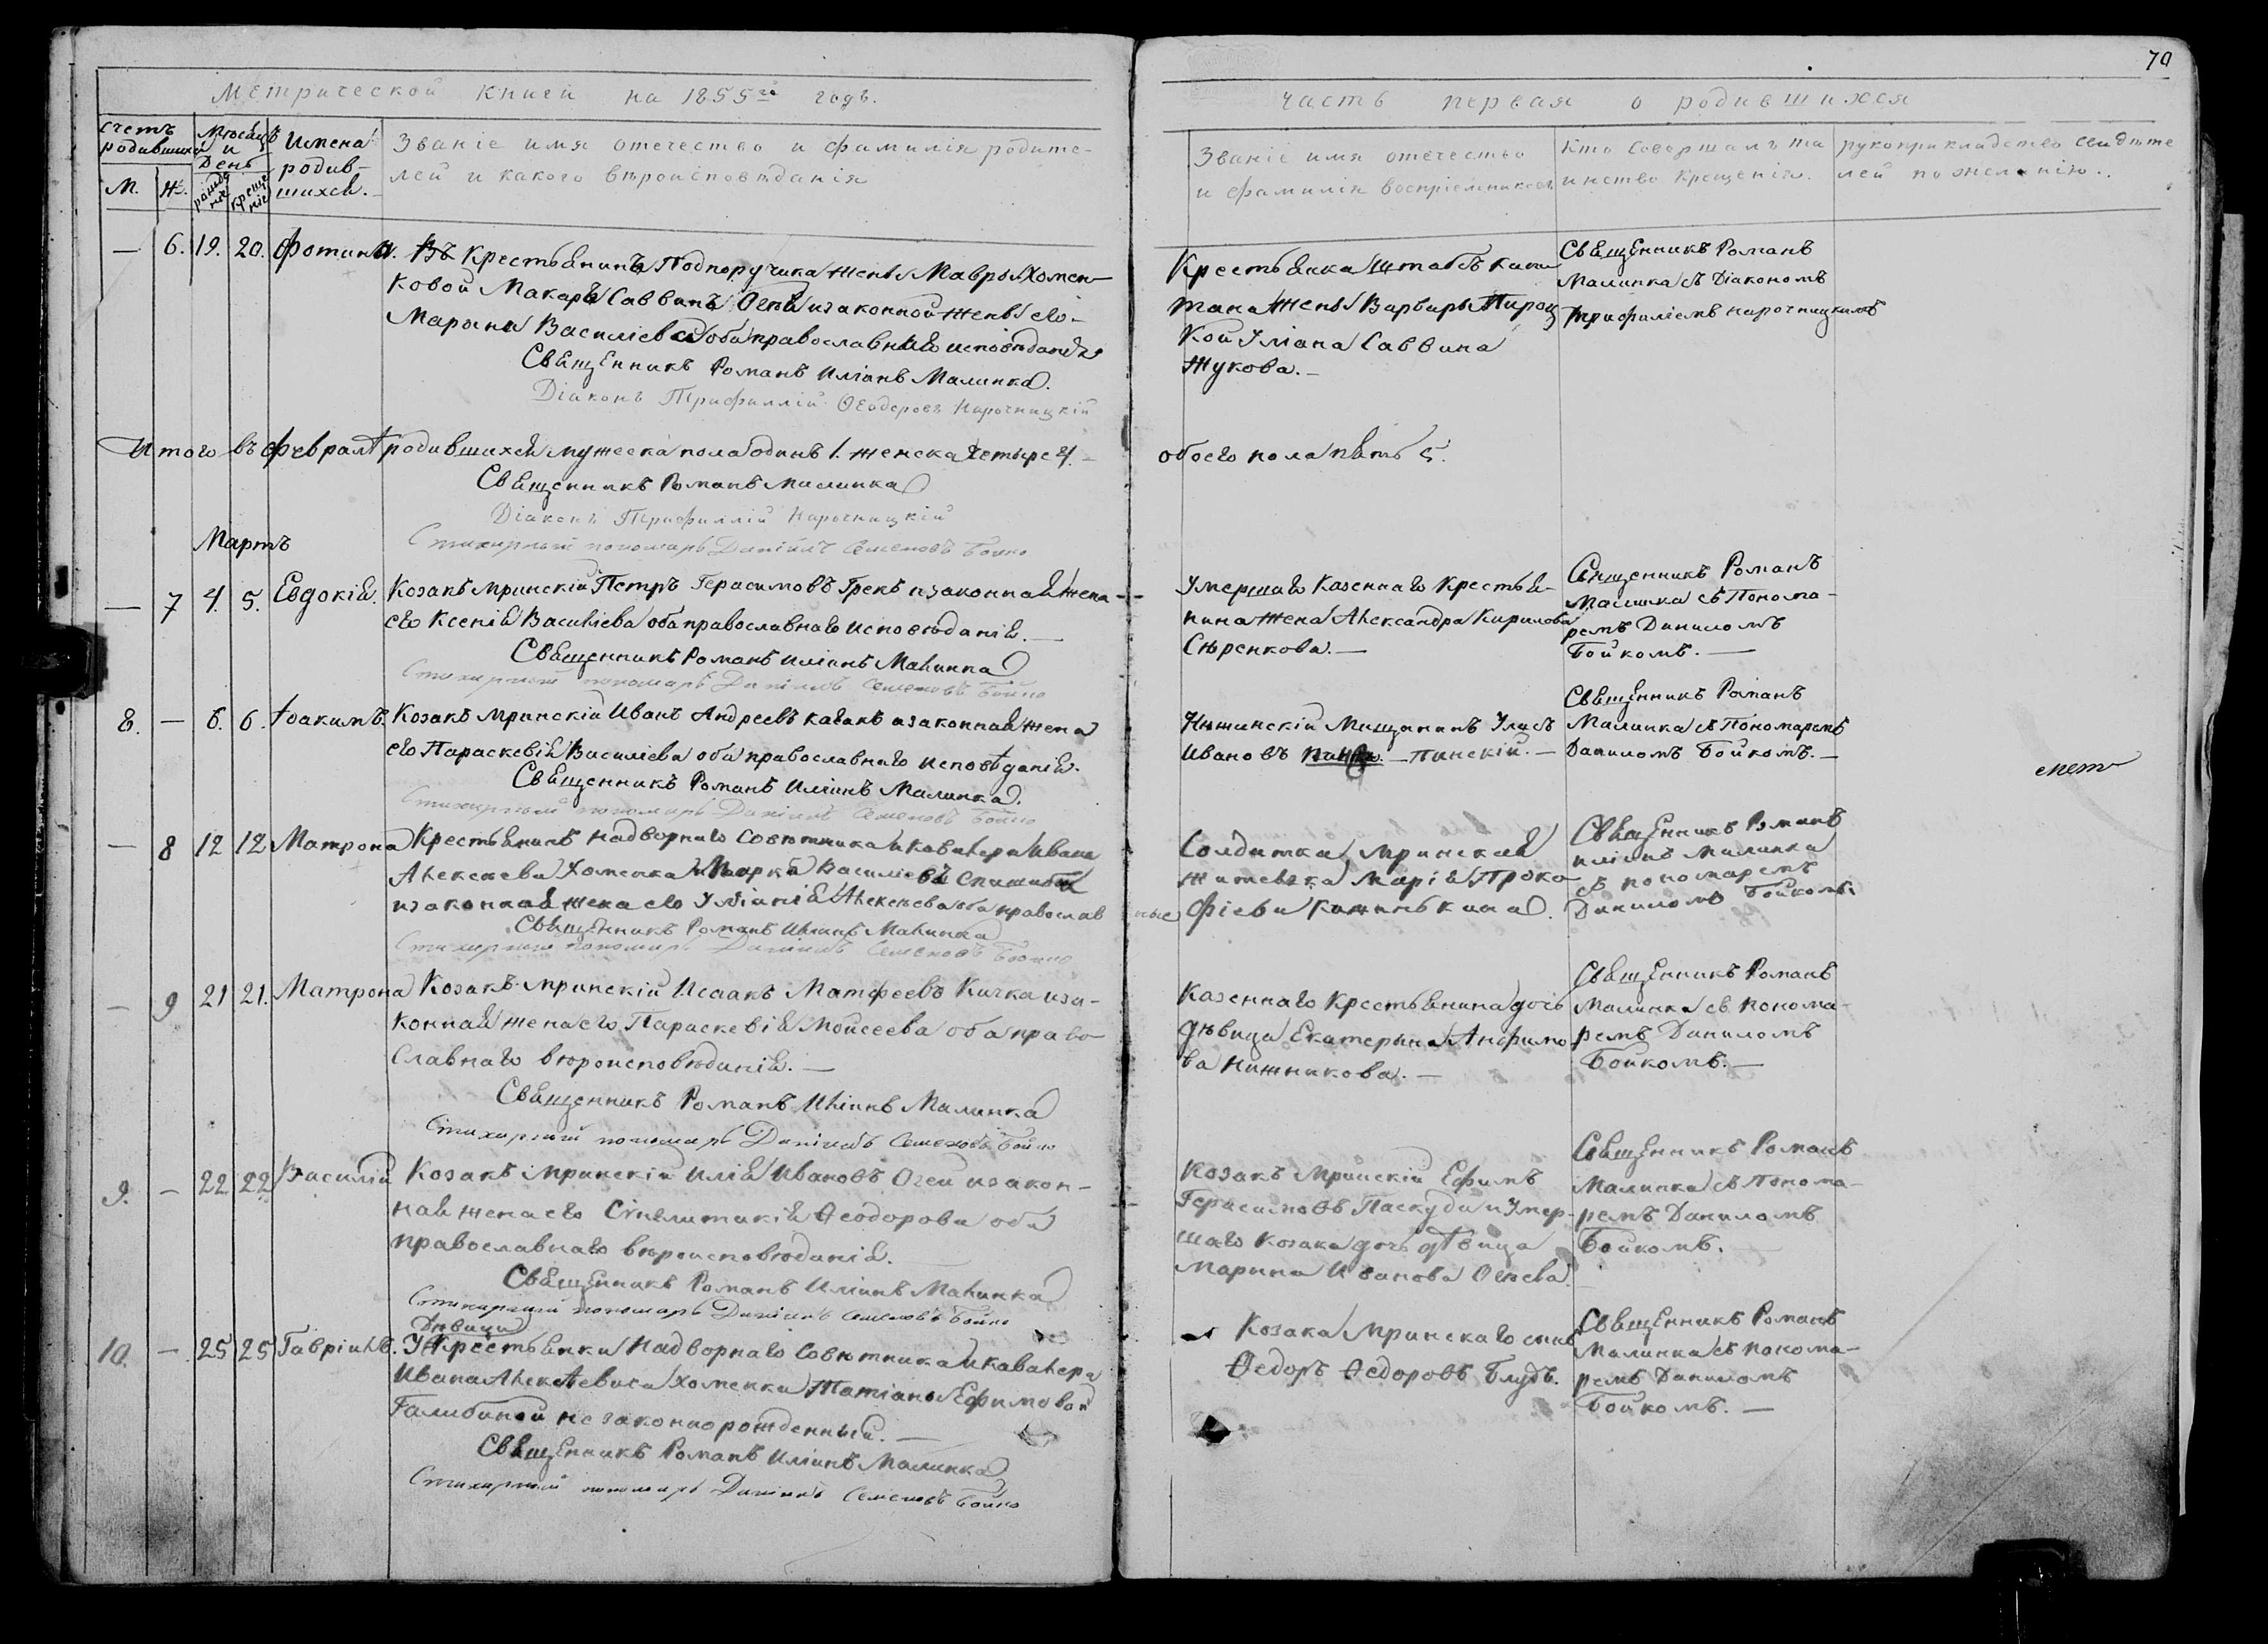 70
Метрической книги на 1855й годъ.
Счетъ родившихся
М. Ж.
Мѣсяцъ и День
рожденіе крещеніе
Имена родившихся.
Званіе имя отечество и фамилія родите-
лей и какого вѣроисповѣданія
6. 19. 20. Фотина.
Крестьянинъ Подпоручика жены Мавры Хомен-
ковой Макаръ Саввинъ и законной жены его
Марина Василіева оба православнаго исповѣданія
Священникъ Романъ Иліинъ Малинка.
Діаконъ Трифиллій Ѳеодоровъ Нарочницкій
Итого въ февралѣ родившихся мужеска пола одинъ 1. женска четыре 4.
Священникъ Романъ Малинка
Діаконъ Трифиллій Нарочницкій
Стихарный пономарь Даніилъ Семеновъ Бойко
Мартъ
7 4. 5. Евдокія.
Козакъ Мринскій Петръ Герасимовъ Грекъ и законная жена
его Ксенія Василіева оба православнаго исповѣданія.
Священникъ Романъ Иліинъ Малинка
Стихарный пономарь Даніилъ Семеновъ Бойко
8. 6. 6. Іоакимъ.
Козакъ Мринскій Иванъ Андреевъ и законная жена
его Параскевія Василіева оба православнаго исповѣданія.
Священникъ Романъ Иліинъ Малинка.
Стихарный пономарь Даніилъ Семеновъ Бойко
8 12 12 Матрона
Крестьянинъ надворнаго совѣтника и кавалера Ивана
Алексеева Хоменка Марко Василіевъ
и законная жена его Уліанія Алексеева оба православ
ные
Священникъ Романъ Иліинъ Малинка
Стихарный пономарь Даніилъ Семеновъ Бойко
9 21 21. Матрона
Козакъ Мринскій Исаакъ Матфеевъ Кичка и за-
конная жена его Параскевія Мойсеева оба право-
славнаго вѣроисповѣданія.
Священникъ Романъ Иліинъ Малинка
Стихарный пономарь Даніилъ Семеновъ Бойко
9. 22 22 Василій
Козакъ Мринскій Илія Ивановъ Огей и закон-
ная жена его Ѳеодорова оба
православнаго вѣроисповѣданія.
Священникъ Романъ Иліинъ Малинка
Стихарный пономарь Даніилъ Семеновъ Бойко
Дѣвици
10. 25 25 Гавріилъ.
У Крестьянки Надворнаго Совѣтника и кавалера
Ивана Алексѣевича Хоменка Татіаны Ефимовой
Галибиной незаконнорожденный.
Священникъ Романъ Иліинъ Малинка
Стихарный пономарь Даніилъ Семеновъ Бойко
часть первая о родившихся
Званіе имя отечество
и фамилія воспріемниковъ
Кто совершалъ та
инство крещенія.
рукоприкладство свидѣте
лей по желанію..
Крестьянка Штабсъ капи
тана жены Варвары Пироц
кой Уліана Саввина
Жукова.
Священникъ Романъ
Малинка съ Діакономъ
Трифиліемъ Нарочницкимъ
обоего пола пять 5.
Умершаго казеннаго крестья-
нина жена Александра Кирилова
Сѣренкова.
Священникъ Романъ
Малинка съ Понома-
ремъ Даниломъ
Бойкомъ.
Нѣжинскій Мищанинъ
Ивановъ Пинскій.
Священникъ Романъ
Малинка съ Пономаремъ
Даниломъ Бойкомъ.
Солдатка Мринская
жителька Марія Проко
фіева
Священникъ Романъ
Иліинъ Малинка
съ пономаремъ
Даниломъ Бойкомъ.
Казеннаго крестьянина дочь
дѣвица Екатерина Анфимо
ва Нижникова.
Священникъ Романъ
Малинка съ понома-
ремъ Даниломъ
Бойкомъ.
Козакъ Мринскій Ефимъ
Герасимовъ Паскуда и Умер-
шаго козака дочь дѣвица
Марина Иванова Огеева.
Священникъ Романъ
Малинка съ Понома-
ремъ Даниломъ
Бойкомъ.
Козака Мринскаго сынъ
Ѳедоръ Ѳедоровъ Блудъ.
Священникъ Романъ
Малинка съ Понома-
ремъ Даниломъ
Бойкомъ.